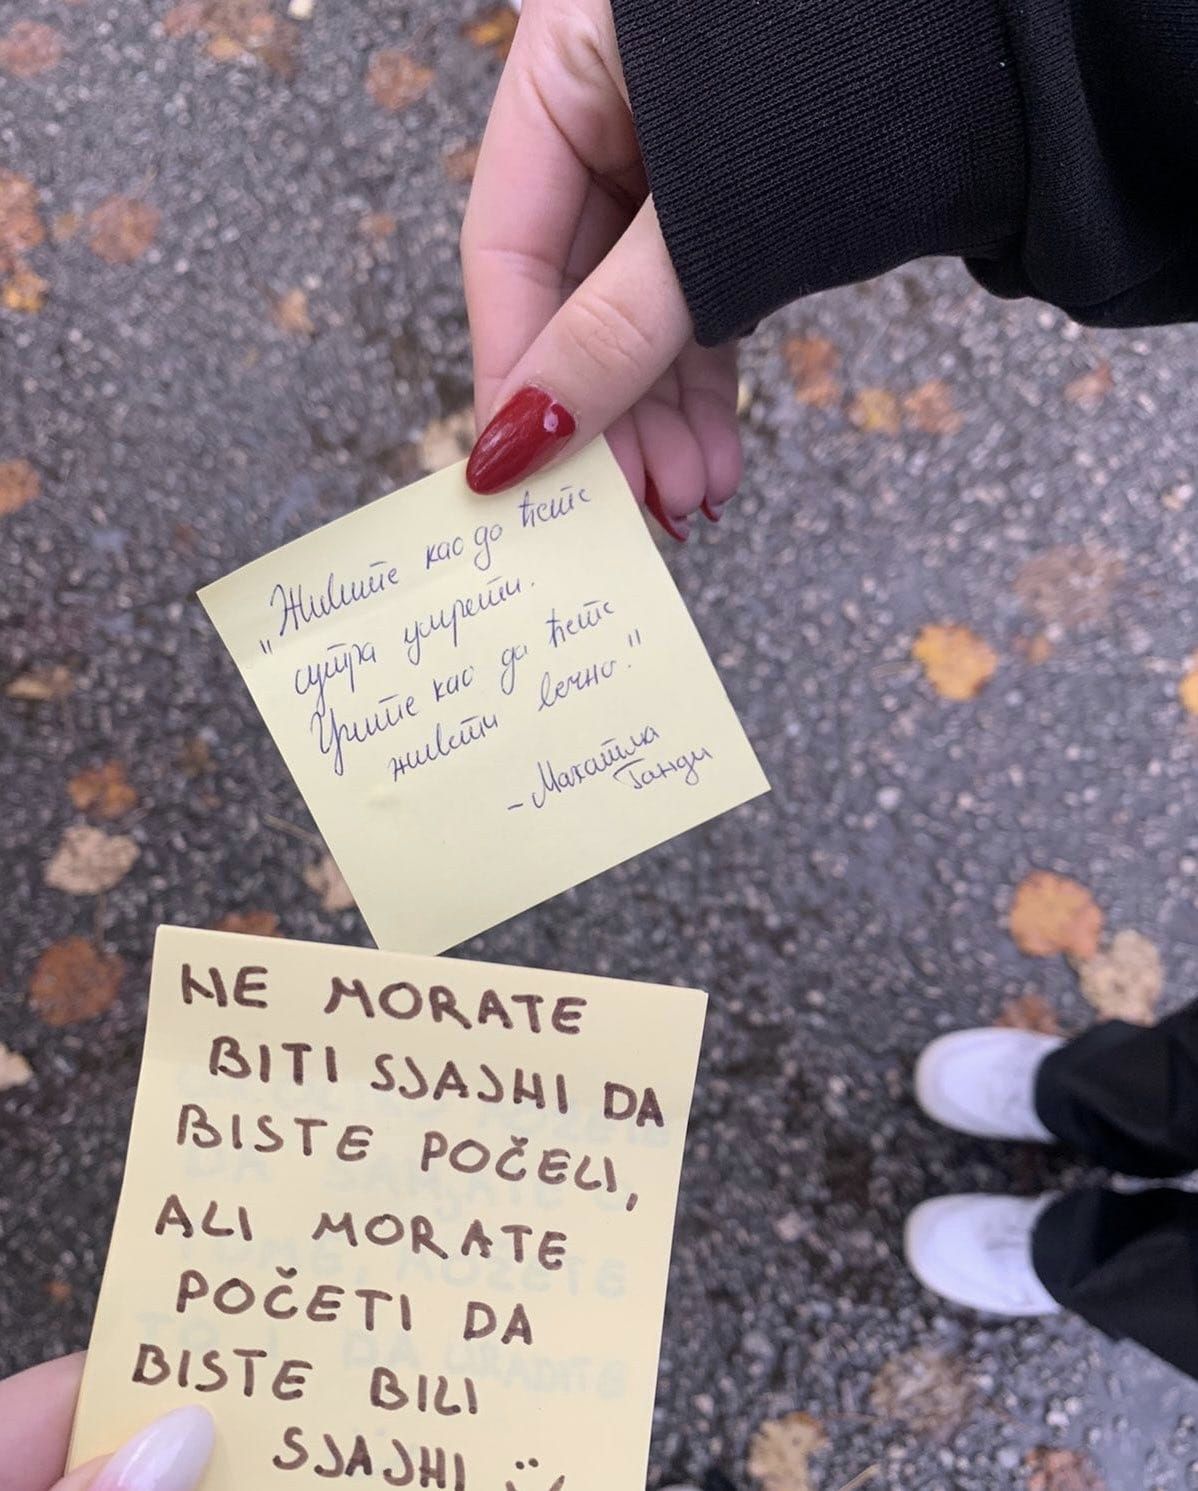 "Живите као да ћете
сутра умрети.
Учите као да ћете
живети вечно."
- Махатма
Ганди
NE MORATE
BITI SJAJNI DA
BISTE POČELI,
ALI MORATE
POČETI DA
BISTE BILI
SJAJNI
DA SANJATE O
TOME, MOŽETE
TO I DA URADITE